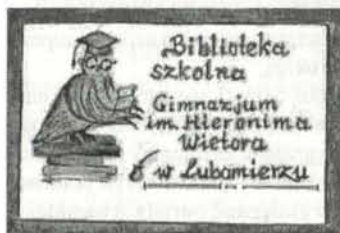 Biblioteka
szkolna
Gimnazjum
im. Hieronima
Wietora
w Lubomierzu